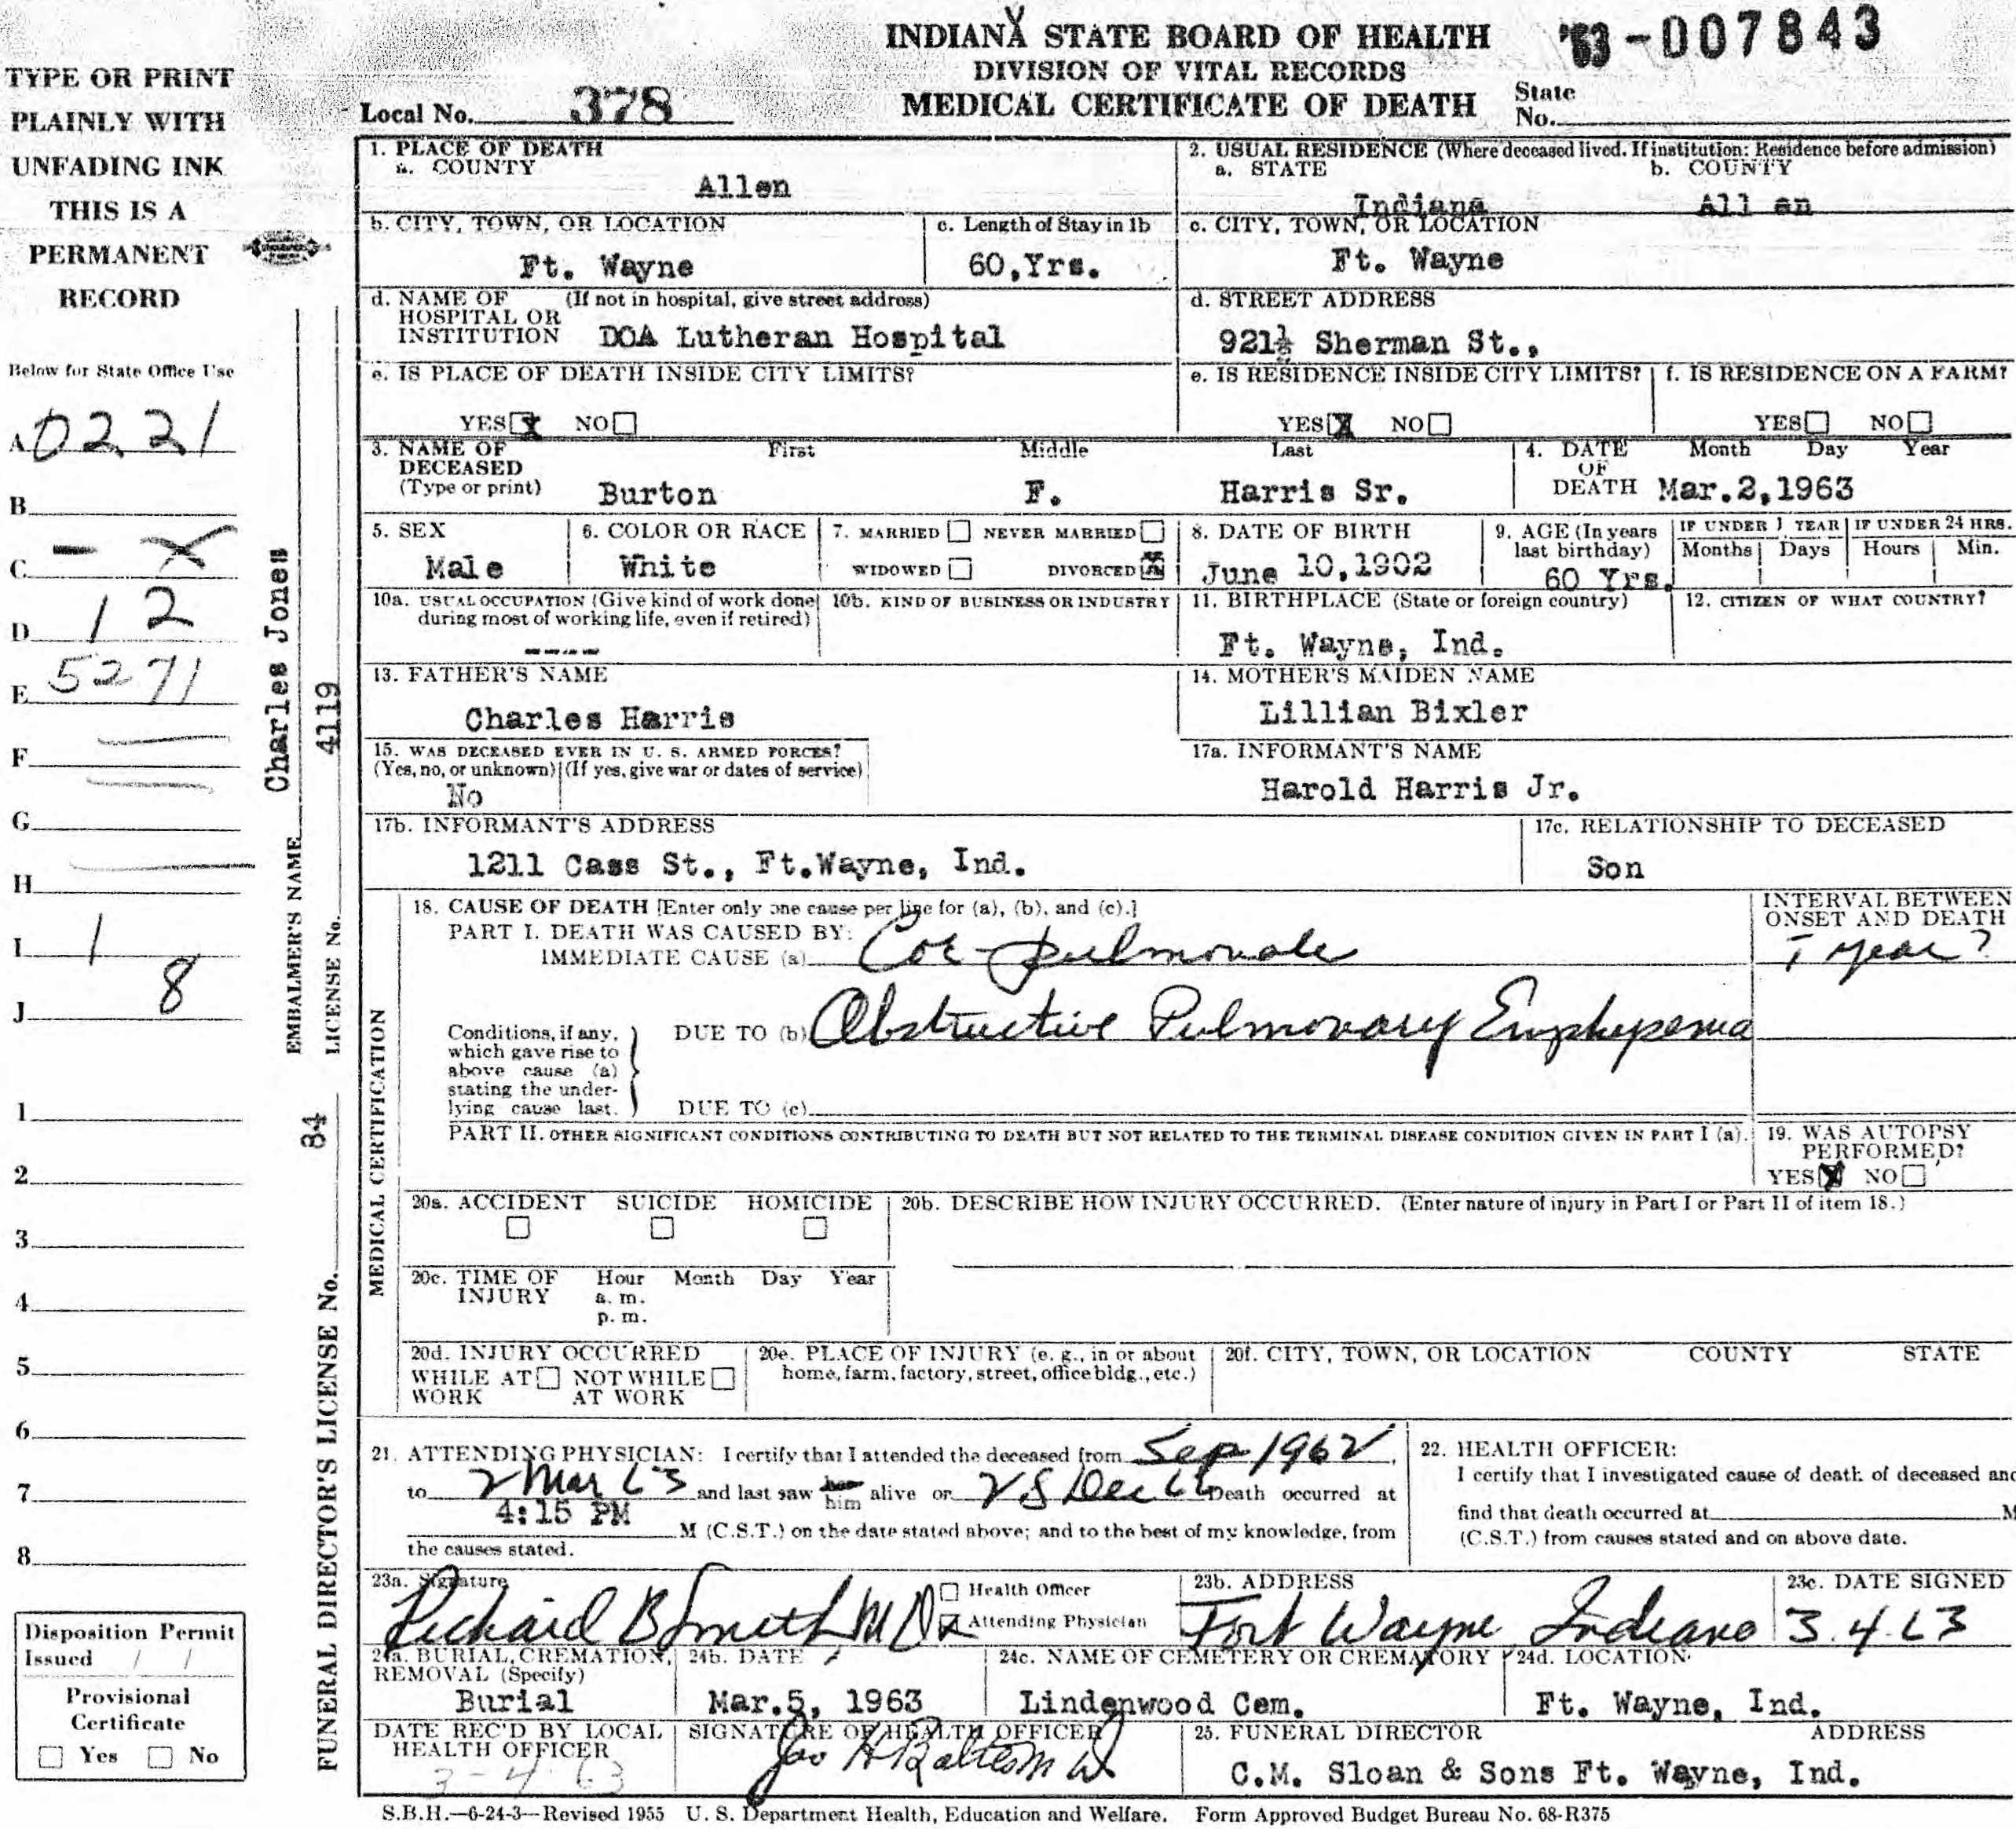 INDIANA STATE BOARD OF HEALTH
DIVISION OF VITAL RECORDS
MEDICAL CERTIFICATE OF DEATH
'63-007843
State No.
Local No. 378
TYPE OR PRINT
PLAINLY WITH
UNFADING INK
THIS IS A
PERMANENT
RECORD
Below for State Office Use
A 0221
B
C - X
D 12
E 5271
F
G
H
I 1
J 8
1
2
3
4
5
6
7
8
Disposition Permit
Issued / /
Provisional
Certificate
Yes No
EMBALMER'S NAME Charles Jones
LICENSE No. 4119
FUNERAL DIRECTOR'S LICENSE No. 84
1. PLACE OF DEATH
a. COUNTY
Allen
2. USUAL RESIDENCE (Where deceased lived. If institution: Residence before admission)
a. STATE b. COUNTY
Indiana All en
b. CITY, TOWN, OR LOCATION
Ft. Wayne
c. Length of Stay in 1b
60,Yrs.
c. CITY, TOWN, OR LOCATION
Ft. Wayne
d. NAME OF (If not in hospital, give street address)
HOSPITAL OR
INSTITUTION DOA Lutheran Hospital
d. STREET ADDRESS
921½ Sherman St.,
e. IS PLACE OF DEATH INSIDE CITY LIMITS?
YES X NO
e. IS RESIDENCE INSIDE CITY LIMITS?
YES X NO
f. IS RESIDENCE ON A FARM?
YES NO
3. NAME OF First Middle Last
DECEASED
(Type or print) Burton F. Harris Sr.
4. DATE Month Day Year
OF
DEATH Mar.2,1963
5. SEX
Male
6. COLOR OR RACE
White
7. MARRIED NEVER MARRIED
WIDOWED DIVORCED X
8. DATE OF BIRTH
June 10,1902
9. AGE (In years
last birthday)
60 Yrs.
IF UNDER 1 YEAR
Months Days
IF UNDER 24 HRS.
Hours Min.
10a. USUAL OCCUPATION (Give kind of work done
during most of working life, even if retired)
----
10b. KIND OF BUSINESS OR INDUSTRY
11. BIRTHPLACE (State or foreign country)
Ft. Wayne, Ind.
12. CITIZEN OF WHAT COUNTRY?
13. FATHER'S NAME
Charles Harris
14. MOTHER'S MAIDEN NAME
Lillian Bixler
15. WAS DECEASED EVER IN U. S. ARMED FORCES?
(Yes, no, or unknown) (If yes, give war or dates of service)
No
17a. INFORMANT'S NAME
Harold Harris Jr.
17b. INFORMANT'S ADDRESS
1211 Cass St., Ft.Wayne, Ind.
17c. RELATIONSHIP TO DECEASED
Son
MEDICAL CERTIFICATION
18. CAUSE OF DEATH [Enter only one cause per line for (a), (b), and (c).]
PART I. DEATH WAS CAUSED BY:
IMMEDIATE CAUSE (a) Cor pulmonale
INTERVAL BETWEEN
ONSET AND DEATH
1 year?
Conditions, if any,
which gave rise to
above cause (a)
stating the under-
lying cause last.
DUE TO (b) Obstructive Pulmonary Emphysema
DUE TO (c)
PART II. OTHER SIGNIFICANT CONDITIONS CONTRIBUTING TO DEATH BUT NOT RELATED TO THE TERMINAL DISEASE CONDITION GIVEN IN PART I (a).
19. WAS AUTOPSY
PERFORMED?
YES X NO
20a. ACCIDENT SUICIDE HOMICIDE
20b. DESCRIBE HOW INJURY OCCURRED. (Enter nature of injury in Part I or Part II of item 18.)
20c. TIME OF Hour Month Day Year
INJURY a. m.
p. m.
20d. INJURY OCCURRED
WHILE AT NOT WHILE
WORK AT WORK
20e. PLACE OF INJURY (e. g., in or about
home, farm, factory, street, office bldg., etc.)
20f. CITY, TOWN, OR LOCATION COUNTY STATE
21. ATTENDING PHYSICIAN: I certify that I attended the deceased from Sep 1962,
to 2 Mar 63 and last saw her him alive on 28 Dec 62 Death occurred at
4:15 PM M (C.S.T.) on the date stated above; and to the best of my knowledge, from
the causes stated.
22. HEALTH OFFICER:
I certify that I investigated cause of death of deceased and
find that death occurred at M
(C.S.T.) from causes stated and on above date.
23a. Signature
Richard B Smith MD
Health Officer
X Attending Physician
23b. ADDRESS
Fort Wayne, Indiana
23c. DATE SIGNED
3.4.63
24a. BURIAL, CREMATION,
REMOVAL (Specify)
Burial
24b. DATE
Mar.5, 1963
24c. NAME OF CEMETERY OR CREMATORY
Lindenwood Cem.
24d. LOCATION
Ft. Wayne, Ind.
DATE REC'D BY LOCAL
HEALTH OFFICER
3-4-63
SIGNATURE OF HEALTH OFFICER
25. FUNERAL DIRECTOR ADDRESS
C.M. Sloan & Sons Ft. Wayne, Ind.
S.B.H.—6-24-3—Revised 1955 U. S. Department Health, Education and Welfare. Form Approved Budget Bureau No. 68-R375